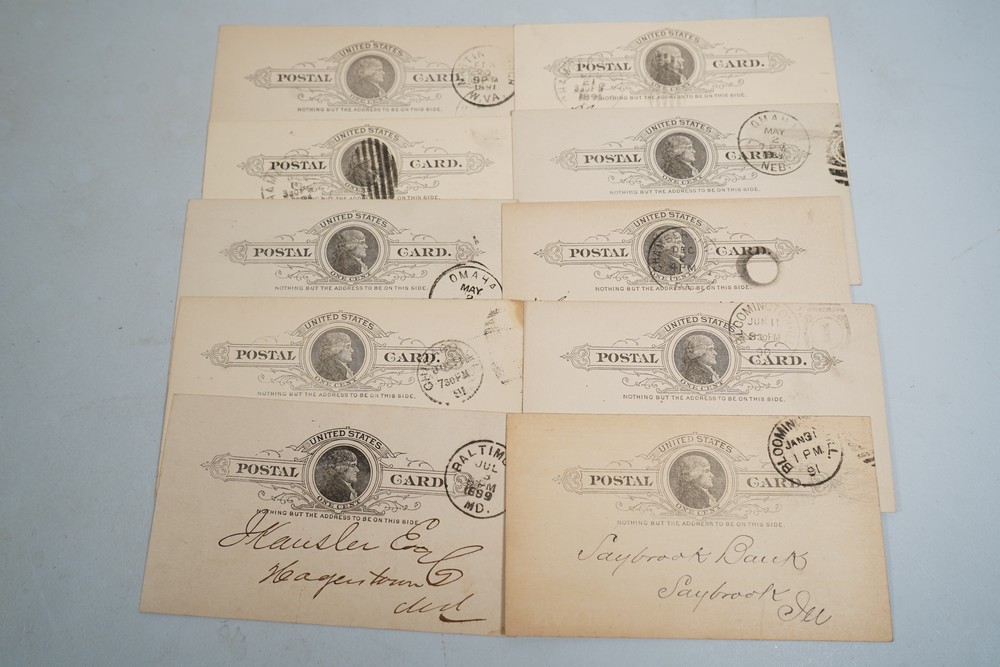 UNITED STATES
POSTAL CARD.
ONE CENT
NOTHING BUT THE ADDRESS TO BE ON THIS SIDE.
9PM
1891
W.VA.
UNITED STATES
POSTAL CARD.
ONE CENT
NOTHING BUT THE ADDRESS TO BE ON THIS SIDE.
UNITED STATES
POSTAL CARD.
ONE CENT
NOTHING BUT THE ADDRESS TO BE ON THIS SIDE.
UNITED STATES
POSTAL CARD.
ONE CENT
NOTHING BUT THE ADDRESS TO BE ON THIS SIDE.
OMAHA
MAY
2
NEB.
UNITED STATES
POSTAL CARD.
ONE CENT
NOTHING BUT THE ADDRESS TO BE ON THIS SIDE.
OMAHA
MAY
2
UNITED STATES
POSTAL CARD.
ONE CENT
NOTHING BUT THE ADDRESS TO BE ON THIS SIDE.
DEC
PM
UNITED STATES
POSTAL CARD.
ONE CENT
NOTHING BUT THE ADDRESS TO BE ON THIS SIDE.
730PM
91
UNITED STATES
POSTAL CARD.
ONE CENT
NOTHING BUT THE ADDRESS TO BE ON THIS SIDE.
BLOOMINGT
JUN 11
UNITED STATES
POSTAL CARD
ONE CENT
NOTHING BUT THE ADDRESS TO BE ON THIS SIDE.
BALTIMO
JUL
PM
1889
MD.
Hagerstown
Md
UNITED STATES
POSTAL CARD.
ONE CENT
NOTHING BUT THE ADDRESS TO BE ON THIS SIDE.
BLOOMING ILL.
JAN 31
1 PM
91
Saybrook Bank
Saybrook
Ill